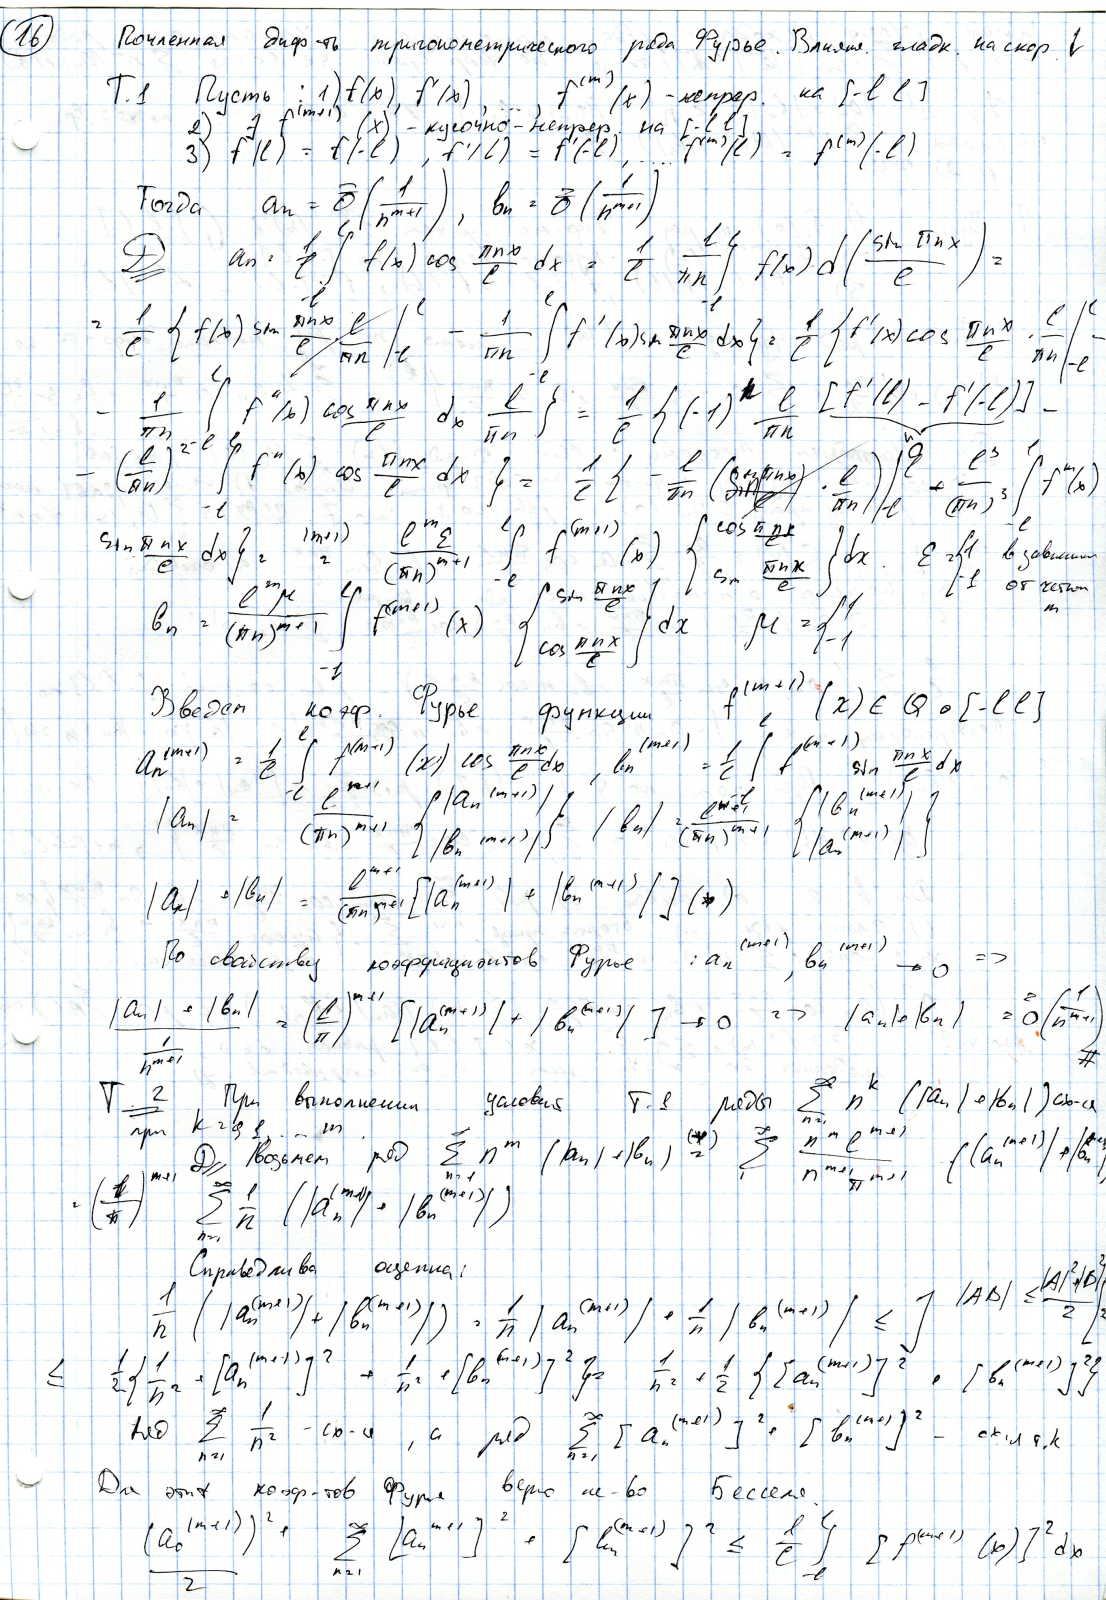 16
Почленная диф-ть тригонометрического ряда Фурье. Влиян. гладк. на скор.
Т.1 Пусть : 1) f(x), f'(x), ..., f^(m)(x) - непрер. на [-l l]
2) ∃ f^(m+1)(x) - кусочно-непрер. на [-l l]
3) f(l) = f(-l), f'(l) = f'(-l), ... f^(m)(l) = f^(m)(-l)
Тогда a_n = ō(1/n^{m+1}), b_n = ō(1/n^{m+1})
Д a_n = 1/l ∫_{-l}^{l} f(x) cos πnx/l dx = 1/l l/πn ∫_{-l}^{l} f(x) d(sin πnx/l) =
= 1/l { f(x) sin πnx/l · l/πn |_{-l}^{l} - l/πn ∫_{-l}^{l} f'(x) sin πnx/l dx } = 1/l { f'(x) cos πnx/l · l/πn |_{-l}^{l} -
- l/πn ∫_{-l}^{l} f''(x) cos πnx/l dx l/πn } = 1/l { (-1)^n l/πn [f'(l) - f'(-l)] -
0
- (l/πn)^2 ∫_{-l}^{l} f''(x) cos πnx/l dx } = 1/l { - l/πn (sin πnx/l · l/πn) |_{-l}^{l} + l^3/(πn)^3 ∫_{-l}^{l} f'''(x)
sin πnx/l dx } = (m+1) = l^m ε/(πn)^{m+1} ∫_{-l}^{l} f^(m+1)(x) { cos πnx/l sin πnx/l } dx. ε = { 1 -1 в зависим от четн m
b_n = l^m μ/(πn)^{m+1} ∫_{-l}^{l} f^(m+1)(x) { sin πnx/l cos πnx/l } dx μ = { 1 -1
Введем коэф. Фурье функции f^(m+1)(x) ∈ Q на [-l l]
a_n^(m+1) = 1/l ∫_{-l}^{l} f^(m+1)(x) cos πnx/l dx, b_n^(m+1) = 1/l ∫_{-l}^{l} f^(m+1) sin πnx/l dx
|a_n| = l^{m+1}/(πn)^{m+1} { |a_n^(m+1)| |b_n^(m+1)| } |b_n| = l^{m+1}/(πn)^{m+1} { |b_n^(m+1)| |a_n^(m+1)| }
|a_n| + |b_n| = l^{m+1}/(πn)^{m+1} [ |a_n^(m+1)| + |b_n^(m+1)| ] (*)
По свойству коэффициентов Фурье : a_n^(m+1), b_n^(m+1) → 0 =>
|a_n| + |b_n| / 1/n^{m+1} = (l/π)^{m+1} [ |a_n^(m+1)| + |b_n^(m+1)| ] → 0 => |a_n| + |b_n| = ō(1/n^{m+1}) #
Т. 2 При выполнении условия Т.1 ряды ∑_{n=1}^{∞} n^k (|a_n| + |b_n|) сх-ся
при k = 0, 1 ... m
Д Возьмем ряд ∑_{n=1}^{∞} n^m (|a_n| + |b_n|) (*)= ∑_{1}^{∞} n^m l^{m+1}/n^{m+1} π^{m+1} (|a_n^(m+1)| + |b_n^(m+1)|)
= (l/π)^{m+1} ∑_{n=1}^{∞} 1/n (|a_n^(m+1)| + |b_n^(m+1)|)
Справедлива оценка:
1/n (|a_n^(m+1)| + |b_n^(m+1)|) = 1/n |a_n^(m+1)| + 1/n |b_n^(m+1)| ≤ ] |AB| ≤ |A|^2+|B|^2/2 [ ≤
≤ 1/2 { 1/n^2 + [a_n^(m+1)]^2 + 1/n^2 + [b_n^(m+1)]^2 } = 1/n^2 + 1/2 { [a_n^(m+1)]^2 + [b_n^(m+1)]^2 }
Ряд ∑_{n=1}^{∞} 1/n^2 - сх-ся, а ряд ∑_{n=1}^{∞} [a_n^(m+1)]^2 + [b_n^(m+1)]^2 - сх-ся т.к
Для этих коэф-тов Фурье верно не-во Бесселя.
(a_0^(m+1))^2/2 + ∑_{n=1}^{∞} [a_n^{m+1}]^2 + [b_n^(m+1)]^2 ≤ 1/l ∫_{-l}^{l} [f^(m+1)(x)]^2 dx